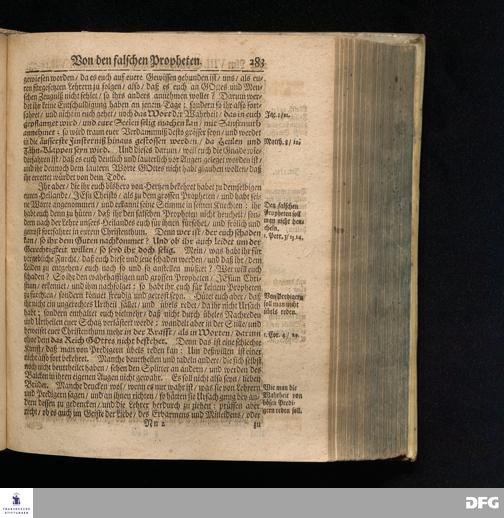 Von den falschen Propheten. 283
gewiesen worden / da es euch auf euere Gewissen gebunden ist / uns / als eu-
ren fürgesetzten Lehrern zu folgen / also / daß es euch an GOttes und Men-
schen Zeugniß nicht fehlet / so ihrs anders annehmen wollet? Darum wer-
det ihr keine Entschuldigung haben an jenem Tage; sondern so ihr also fort-
fahret / und nicht in euch gehet / noch das Wort der Wahrheit / das in euch
gepflantzet wird / und eure Seelen selig machen kan / mit Sanftmuth
annehmet; so wird traun eure Verdammniß desto grösser seyn / und werdet
in die äusserste Finsterniß hinaus gestossen werden / da Heulen und
Zähn-Klappen seyn wird. Und dieses darum / weil euch die Gnade wie-
derfahren ist / daß es euch deutlich und lauterlich vor Augen geleget worden ist /
und ihr dennoch dem lautern Worte GOttes nicht habt glauben wollen / daß
ihr errettet würdet von dem Tode.
Jac. 1/21.
Matth. 8/12.
Ihr aber / die ihr euch bißhero von Hertzen bekehret habet zu demselbigen
euern Heilande / JEsu Christo / als zu dem grossen Propheten / und habt sei-
ne Worte angenommen / und erkant seine Stimme in seinen Knechten: ihr
habt euch denn zu hüten / daß ihr den falschen Propheten nicht heuchelt / son-
dern nach der Lehre unsers Heilandes euch für ihnen fürsehet / und frölich und
getrost fortfahret in eurem Christenthum. Denn wer ist / der euch schaden
kan / so ihr dem Guten nachkommet? Und ob ihr auch leidet um der
Gerechtigkeit willen / so seyd ihr doch selig. Mein / was habt ihr für
vergebliche Furcht / daß euch diese und jene schaden werden / und daß ihr / dem
Leiden zu entgehen / euch noch so und so anstellen müsset? Wer will euch
schaden? So ihr den wahrhafftigen und grossen Propheten / JEsum Chri-
stum / erkennet / und ihm nachfolget: so habt ihr euch für keinem Propheten
zu fürchten / sondern könnet freudig und getrost seyn. Hütet euch aber / daß
ihr nicht ein ungerechtes Urtheil fället / und übels redet / da ihr nicht Ursach
habt; sondern enthaltet euch vielmehr / daß nicht durch übeles Nachreden
und Urtheilen euer Schatz verlästert werde: wandelt aber in der Stille / und
beweiset eue Christenthum mehr in der Krafft / als in Worten / darum
ohne den das Reich GOttes nicht bestehet. Denn das ist eine schlechte
Kunst / daß man von Predigern übels reden kan: Um deswillen ist einer
nicht also fort bekehret. Manche beurtheilen und tadeln andere / die sich selbst
noch nicht beurtheilet haben / sehen den Splitter an andern / und werden des
Balcken in ihren eigenen Augen nicht gewahr. Es soll nicht also seyn / lieben
Brüder. Manche dencken wol / wenn es nur wahr ist / was sie von Lehrern
und Predigern sagen / und an ihnen richten / so hätten sie Ursach gnug bey an-
dern dessen zu gedencken / und die Lehrer herdurch zu ziehen: prüffen aber
nicht / ob es auch im Geiste der Liebe / des Erbarmens und Mitleidens / oder
Den falschen
Propheten soll
man nicht heu-
cheln.
1. Petr. 3/13.14.
Von Predigern
soll man nicht
übels reden.
1. Cor. 4/20.
Wie man die
Wahrheit von
bösen Predi-
gern reden soll.
Nn 2
zu
FRANCKESCHE
STIFTUNGEN
DFG